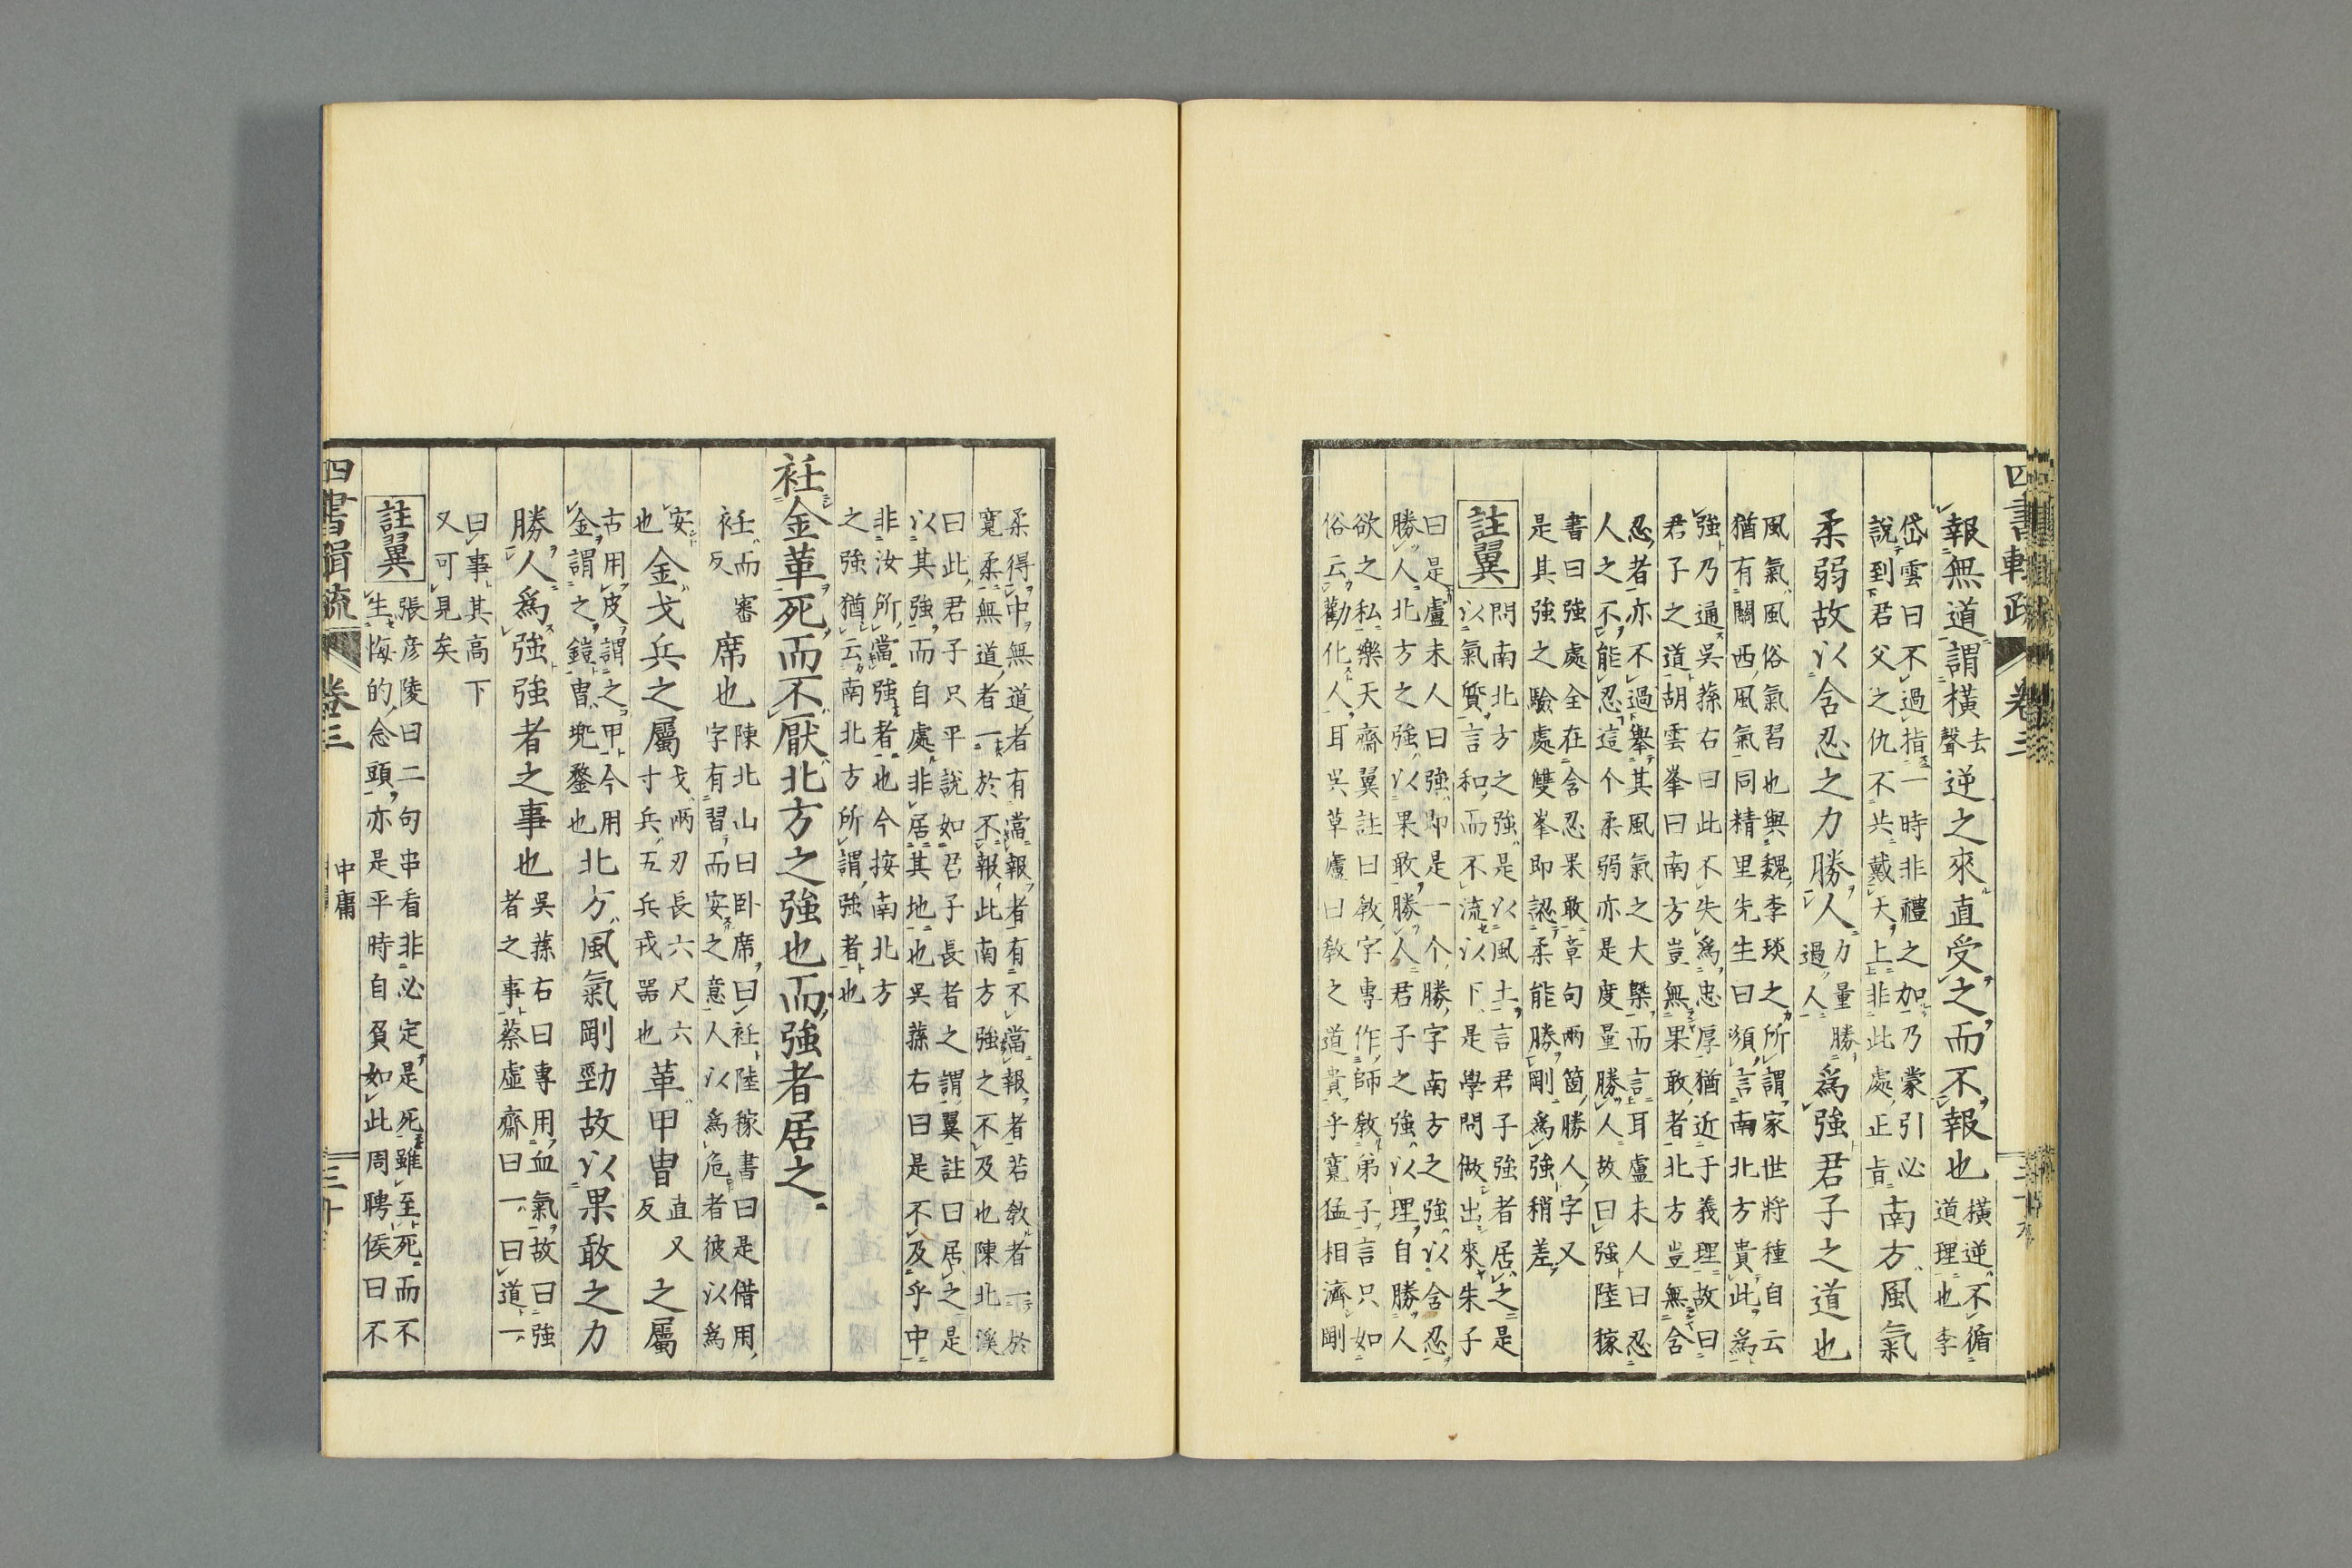 四書輯疏 卷三
報無道謂橫去聲逆之來直受之而不報也橫逆不循道理也李
岱雲曰不過指一時非禮之加乃蒙引必
說到君父之仇不共戴天上非此處正旨南方風氣
柔弱故以含忍之力勝人力量勝過人爲強君子之道也
風氣風俗氣習也與魏李琰之所謂家世將種自云
猶有關西風氣同精里先生曰須言南北方貴此爲
強乃通吳蓀右曰此不失爲忠厚猶近于義理故曰
君子之道胡雲峯曰南方豈無果敢者北方豈無含
忍者亦不過舉其風氣之大槩而言耳盧未人曰忍
人之不能忍這个柔弱亦是度量勝人故曰強陸稼
書曰強處全在含忍果敢章句兩箇勝人字又
是其強之驗處雙峯即認柔能勝剛爲強稍差
註翼
問南北方之強是以風土言君子強者居之是
以氣質言和而不流以下是學問做出來朱子
曰是盧未人曰強即是一个勝字南方之強以含忍
勝人北方之強以果敢勝人君子之強以理自勝人
欲之私樂天齋翼註曰敎字專作師敎弟子言只如
俗云勸化人耳吳草廬曰敎之道貴乎寬猛相濟剛
柔得中無道者有當報者有不當報者若敎者一於
寬柔無道者一於不報此南方強之不及也陳北溪
曰此君子只平說如君子長者之謂翼註曰居之是
以其強而自處非居其地也吳蓀右曰是不及乎中
非汝所當強者也今按南北方
之強猶云南北方所謂強者也
衽金革死而不厭北方之強也而強者居之
衽而審反席也陳北山曰臥席曰衽陸稼書曰是借用
字有習而安之意人以爲危者彼以爲
安也金戈兵之屬戈兩刃長六尺六寸兵五兵戎器也革甲冑直又反之屬
古用皮謂之甲今用
金謂之鎧冑兜鍪也北方風氣剛勁故以果敢之力
勝人爲強強者之事也吳蓀右曰專用血氣故曰強
者之事蔡虛齋曰一曰道一
曰事其高下
又可見矣
註翼
張彦陵曰二句串看非必定是死雖至死而不
生悔的念頭亦是平時自負如此周聘侯曰不
四書輯疏 卷三 中庸 三十